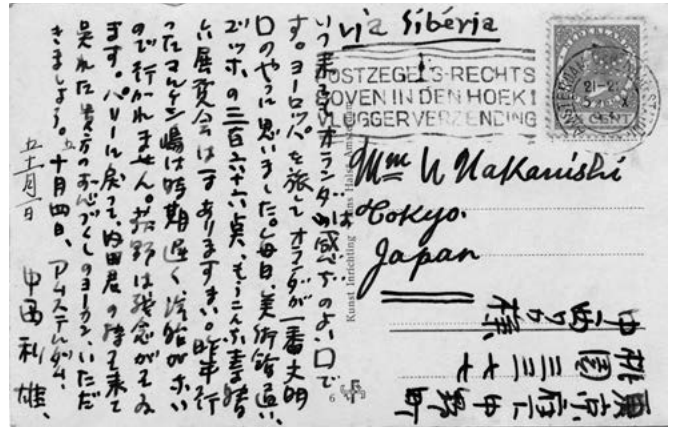 via Sibéria
POSTZEGELS-RECHTS
BOVEN IN DEN HOEK!
VLUGGER VERZENDING
CENT
Mme N Nakanishi
Tokyo.
Japan
東京府下中野町
桃園三三
中西
様
Kunst Inrichting Frans Hals, Amsterdam
6
いつ来てもオランダは感じのよい口で
す。ヨーロッパを旅してオランダが一番文明
口のやうに思いました。毎日、美術館通い、
ゴッホ、の三百六十六点、もうこんな素晴
い展覧会は ありますまい。昨年行
ったマルケン嶋は時期遅く、汽船がない
ので行かれません。荻野は残念がってゐ
ます。パリーに戻って、内田君の持って来て
呉れた貴方のお心づくしのヨーカン、いただ
きましよう。十月四日、アムステルダム、
中西利雄、